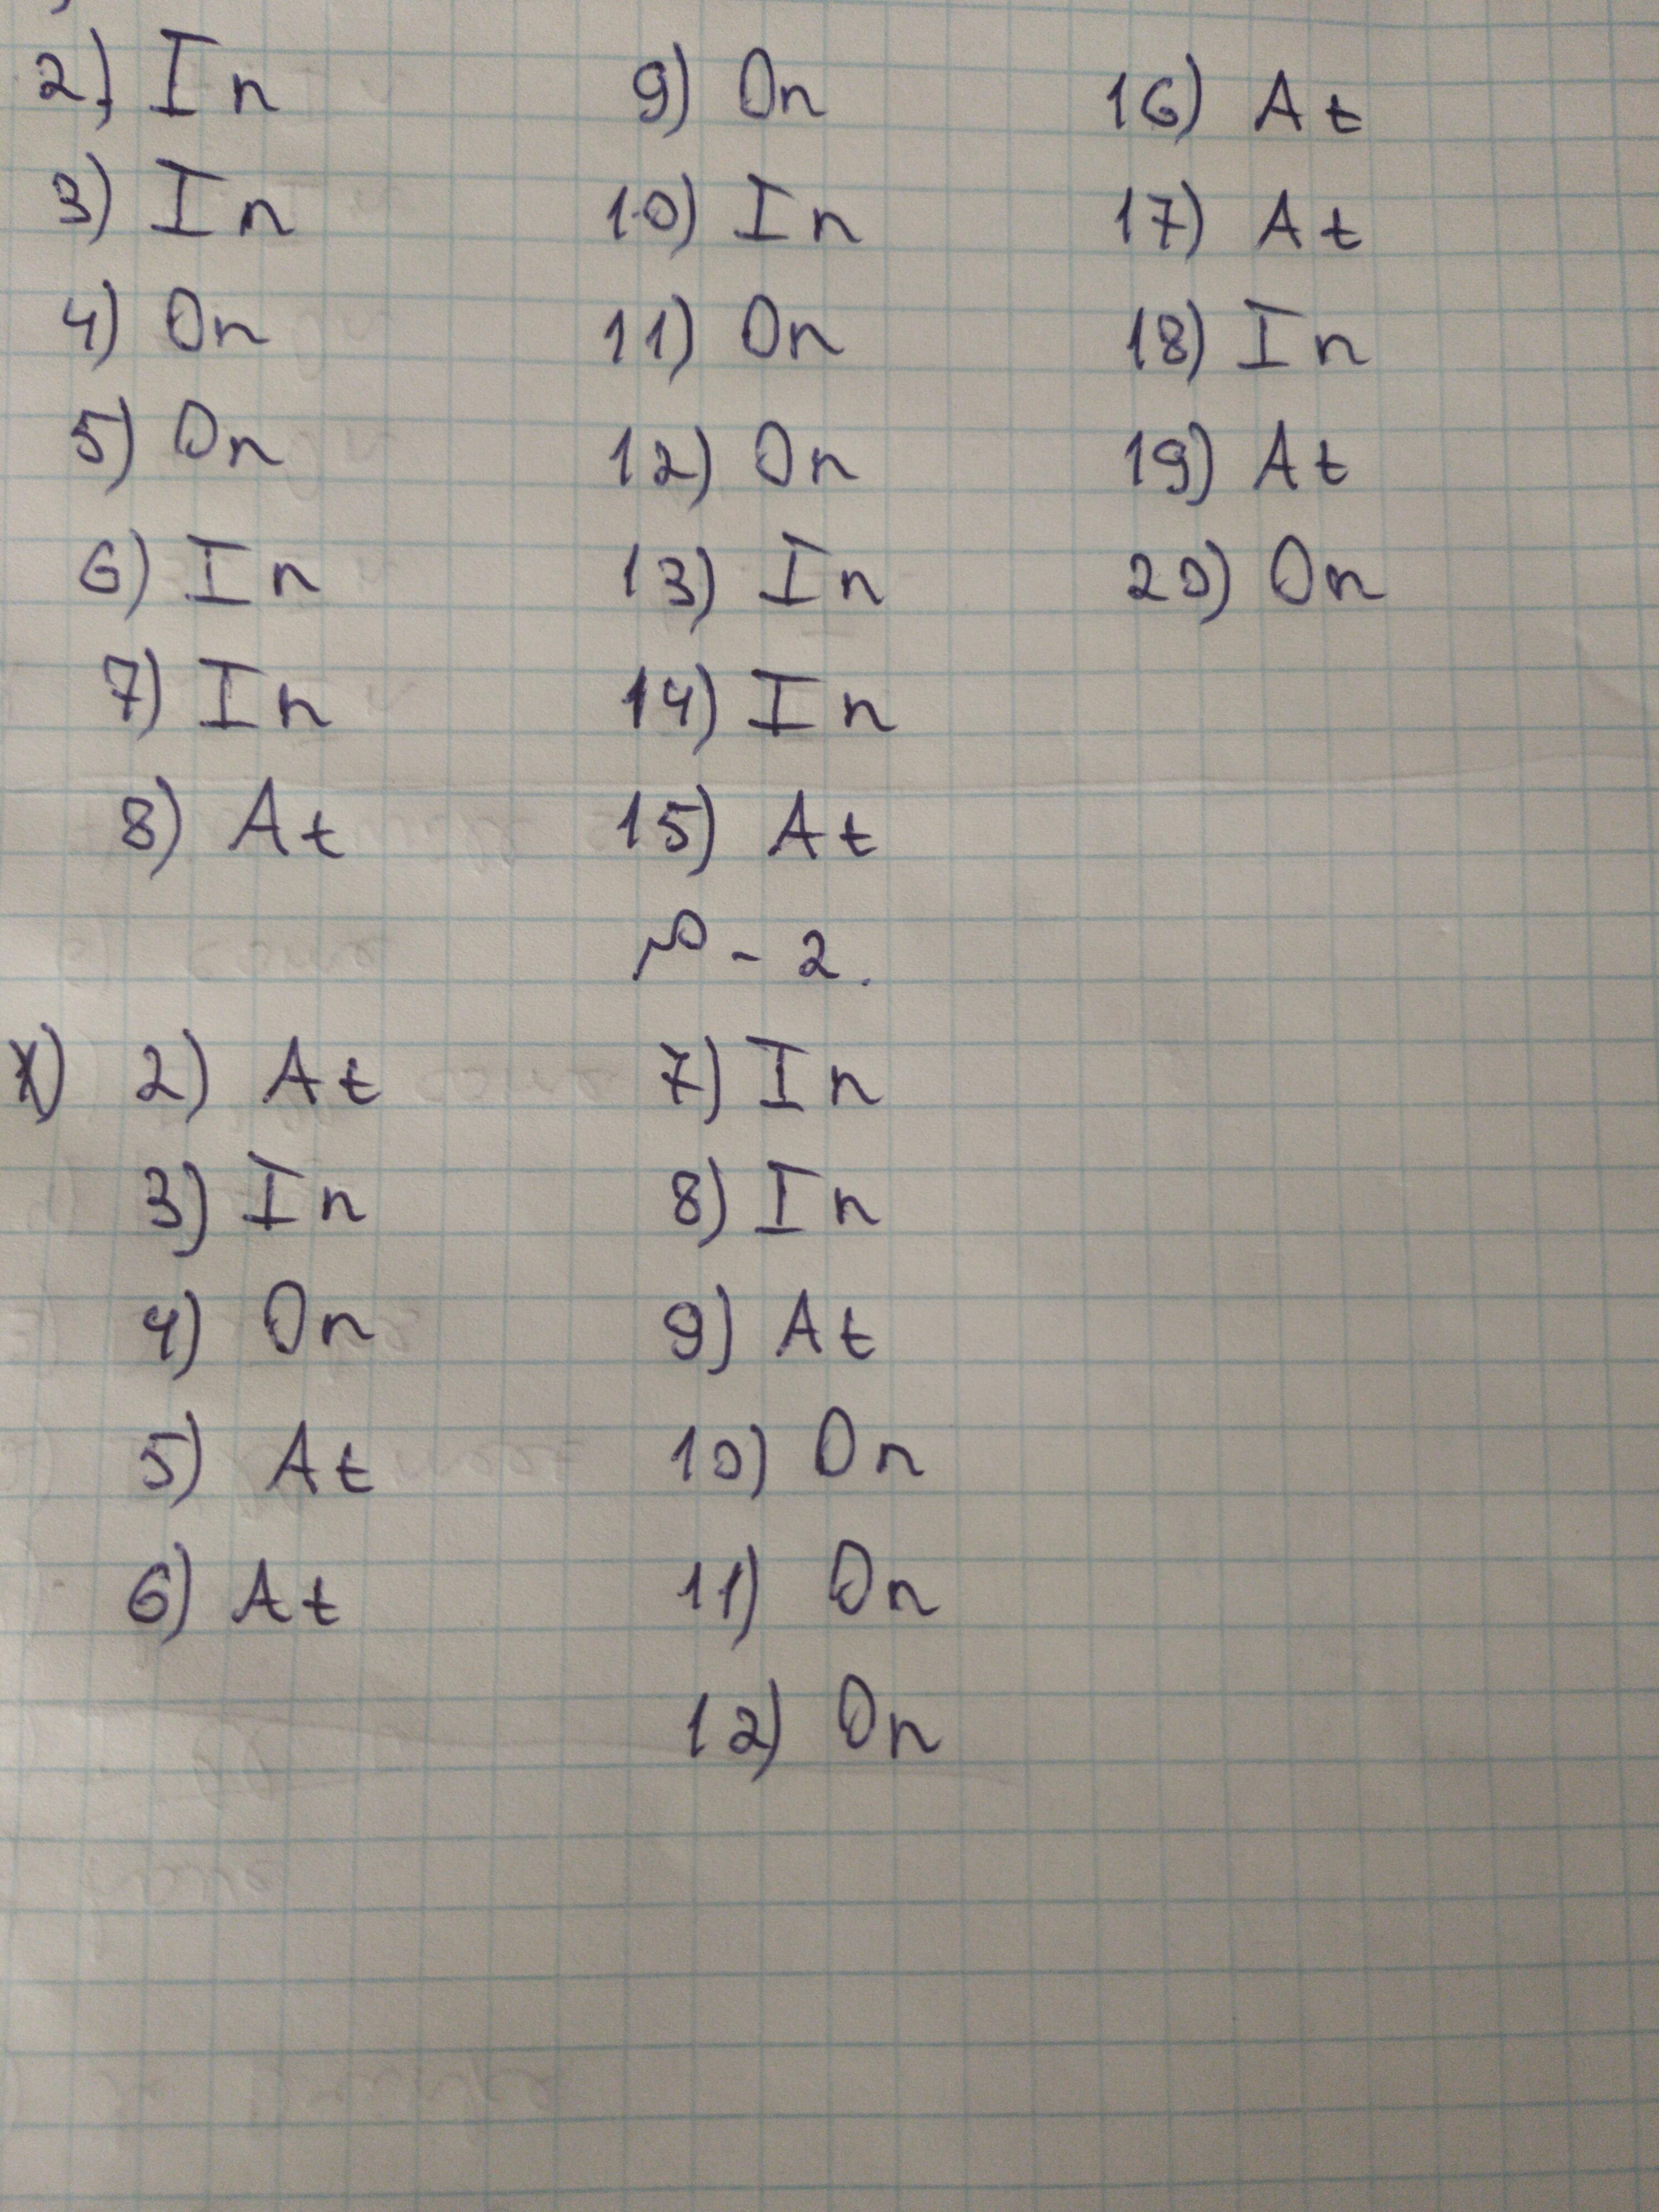 2) In
3) In
4) On
5) On
6) In
7) In
8) At
9) On
10) In
11) On
12) On
13) In
14) In
15) At
16) At
17) At
18) In
19) At
20) On
№ - 2.
2) At
3) In
4) On
5) At
6) At
7) In
8) In
9) At
10) On
11) On
12) On